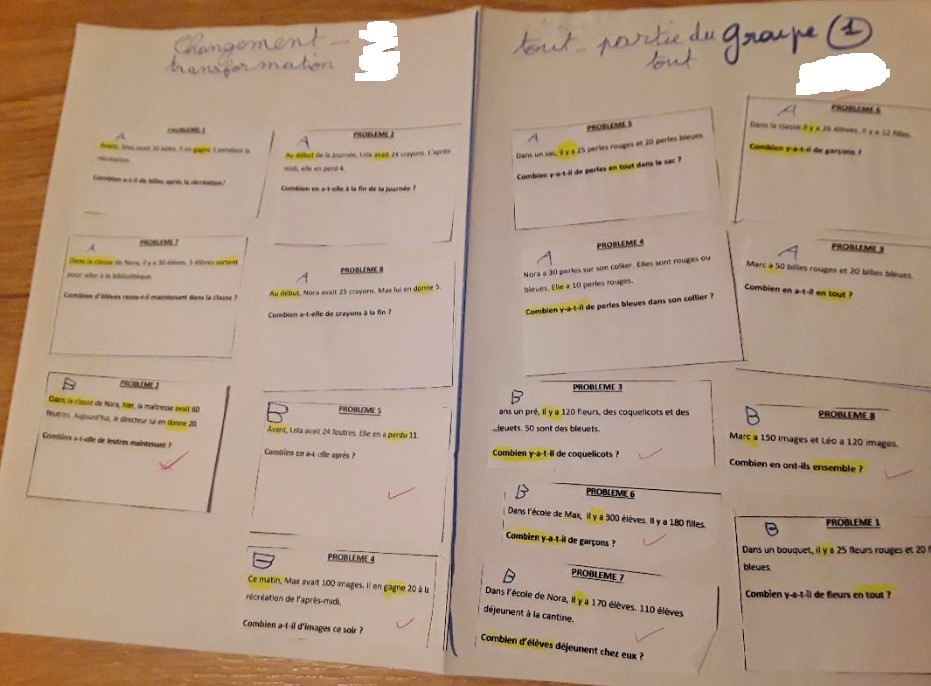 Changement -
transformation
A
PROBLEME 1
Avant, Max avait 30 billes. Il en gagne 5 pendant la
récréation.
Combien a-t-il de billes après la récréation?
A
PROBLEME 2
Au début de la journée, Lola avait 24 crayons. L'après
midi, elle en perd 4.
Combien en a-t-elle à la fin de la journée ?
A
PROBLEME 7
Dans la classe de Nora, il y a 30 élèves. 5 élèves sortent
pour aller à la bibliothèque.
Combien d'élèves reste-t-il maintenant dans la classe ?
A
PROBLEME 8
Au début, Nora avait 25 crayons. Max lui en donne 5.
Combien a-t-elle de crayons à la fin ?
B
PROBLEME 2
Dans la classe de Nora, hier, la maîtresse avait 60
feutres. Aujourd'hui, le directeur lui en donne 20.
Combien a-t-elle de feutres maintenant ?
B
PROBLEME 5
Avant, Lola avait 24 feutres. Elle en a perdu 11.
Combien en a-t-elle après ?
B
PROBLEME 4
Ce matin, Max avait 100 images. Il en gagne 20 à la
récréation de l'après-midi.
Combien a-t-il d'images ce soir ?
tout - partie du groupe (1)
tout
A
PROBLEME 5
Dans un sac, il y a 25 perles rouges et 20 perles bleues.
Combien y-a-t-il de perles en tout dans le sac ?
A
PROBLEME 6
Dans la classe il y a 26 élèves. Il y a 12 filles.
Combien y-a-t-il de garçons ?
A
PROBLEME 4
Nora a 30 perles sur son collier. Elles sont rouges ou
bleues. Elle a 10 perles rouges.
Combien y-a-t-il de perles bleues dans son collier ?
A
PROBLEME 3
Marc a 50 billes rouges et 20 billes bleues.
Combien en a-t-il en tout ?
B
PROBLEME 3
ans un pré, il y a 120 fleurs, des coquelicots et des
leuets. 50 sont des bleuets.
Combien y-a-t-il de coquelicots ?
B
PROBLEME 8
Marc a 150 images et Léo a 120 images.
Combien en ont-ils ensemble ?
B
PROBLEME 6
Dans l'école de Max, il y a 300 élèves. Il y a 180 filles.
Combien y-a-t-il de garçons ?
B
PROBLEME 1
Dans un bouquet, il y a 25 fleurs rouges et 20 f
bleues.
Combien y-a-t-il de fleurs en tout ?
B
PROBLEME 7
Dans l'école de Nora, il y a 170 élèves. 110 élèves
déjeunent à la cantine.
Combien d'élèves déjeunent chez eux ?